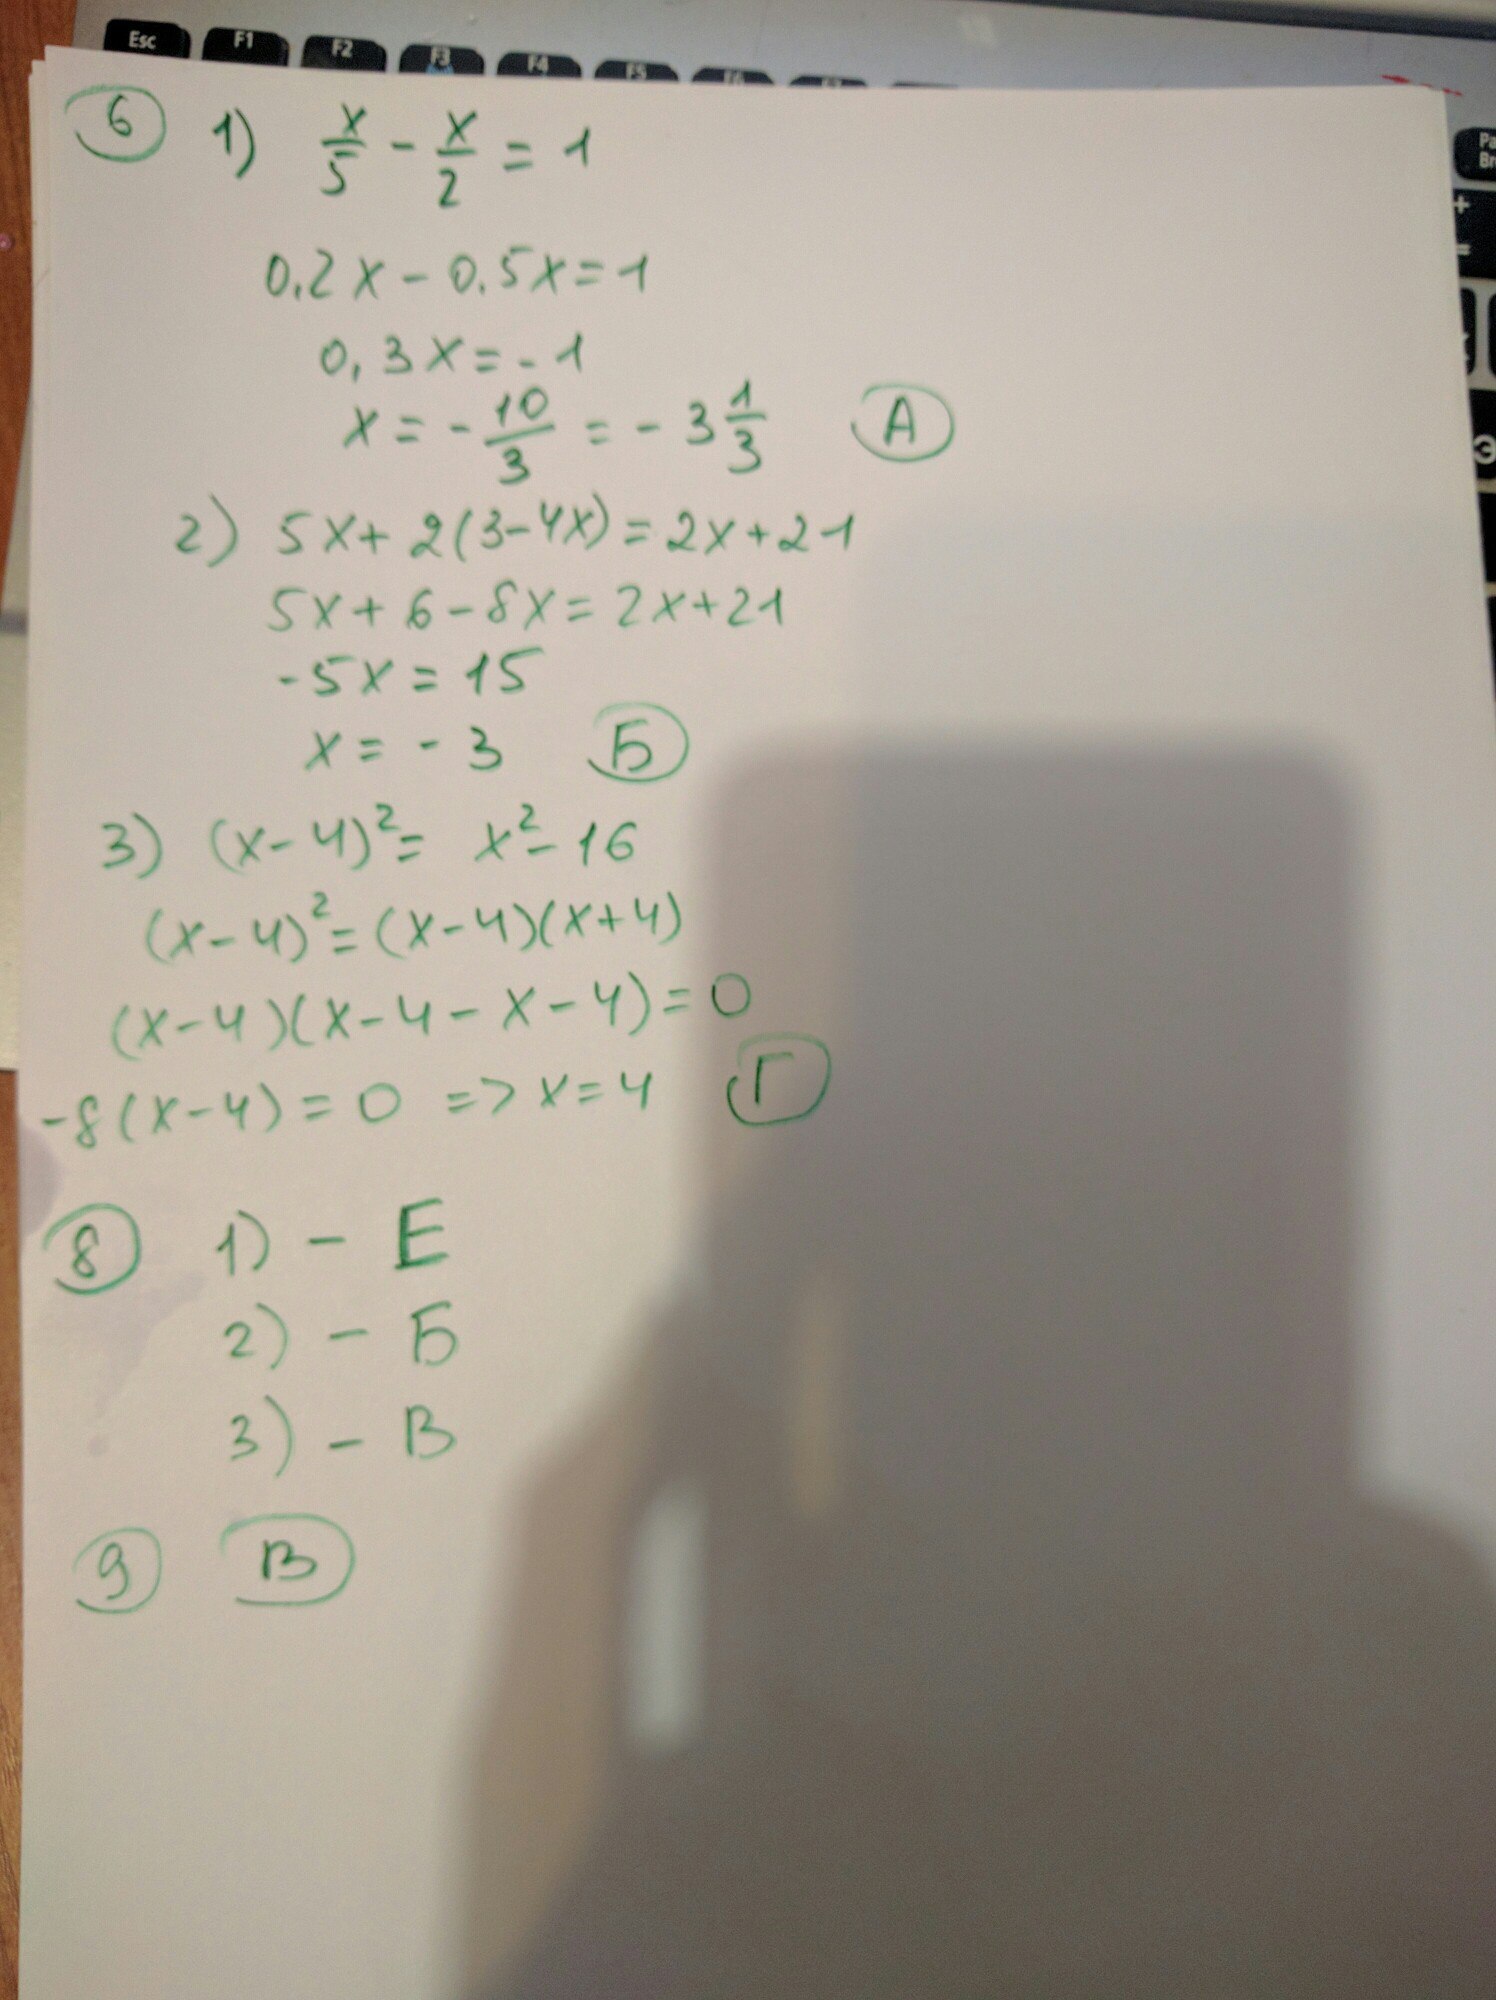 Esc F1 F2 F3 F4 F5 F6
6 1) x/5 - x/2 = 1
0,2x - 0,5x = 1
0,3x = -1
x = -10/3 = -3 1/3 А
2) 5x + 2(3-4x) = 2x + 21
5x + 6 - 8x = 2x + 21
-5x = 15
x = -3 Б
3) (x-4)² = x² - 16
(x-4)² = (x-4)(x+4)
(x-4)(x-4-x-4) = 0
-8(x-4) = 0 => x = 4 Г
8 1) - Е
2) - Б
3) - В
9 В